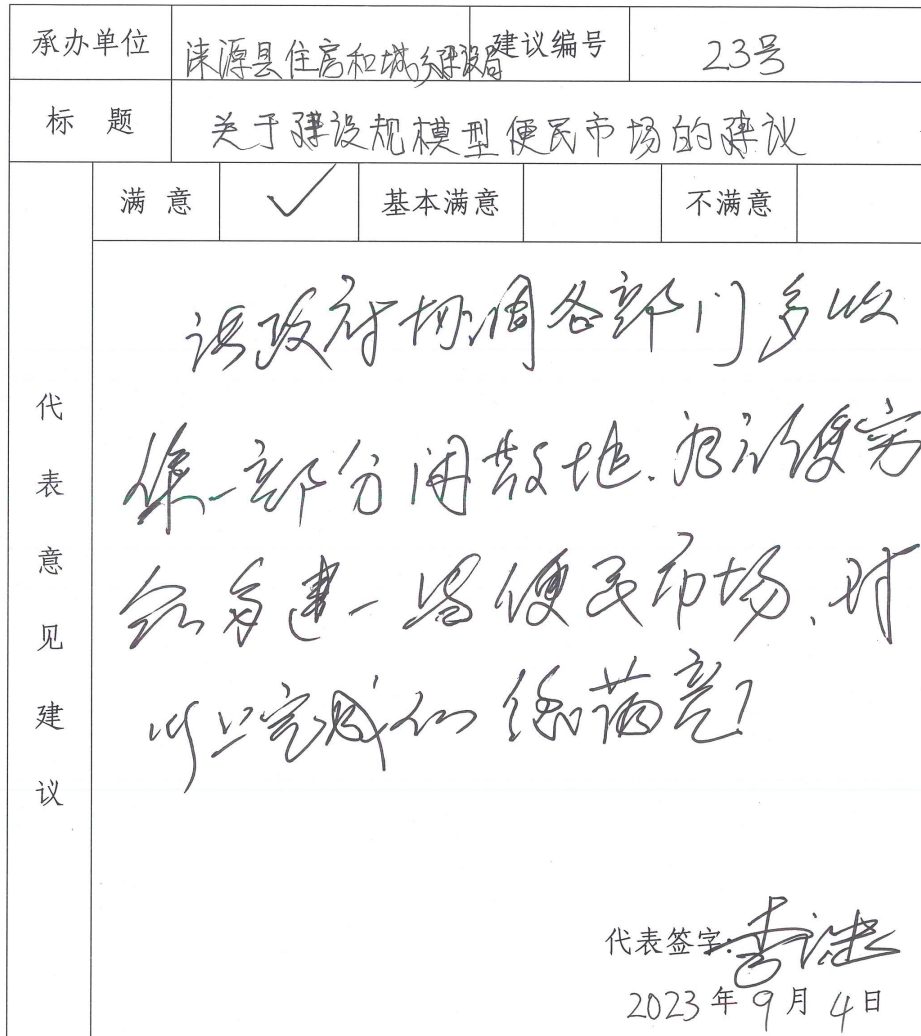 承办单位 涞源县住房和城乡建设局 建议编号 23号
标题 关于建设规模型便民市场的建议
满意 ✓ 基本满意 不满意
代表意见建议
请政府协调各部门多收
集一部分闲散地.为
多建一 便民市场、对
以上完成 满意!
代表签字:李
2023年9月4日